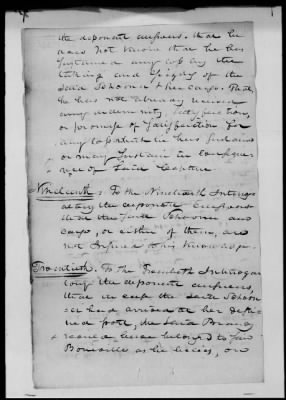 the deponent answers. that he
does not know that he has
sustained any loss by the
taking and of the
said Schooner & her cargo. That
he has not already received
any indemnity, satisfaction,
or promise of satisfaction for
any loss which he has sustained
or may sustain in consequ
ence of said Capture
Nineteenth: To the Nineteenth Interrog
atory the deponent answers
that the said Schooner and
cargo, or either of them, are
not Insured to his knowledge.
Twentieth. To the Twentieth Interrogat
tory the deponent answers,
that in case the said Schoon
er had arrived at her destin
ed port, the said
would have belonged to said
as he believes, and